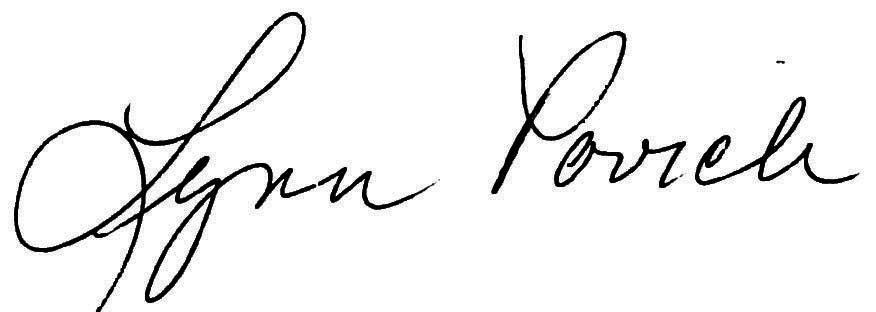 Lynn Povich